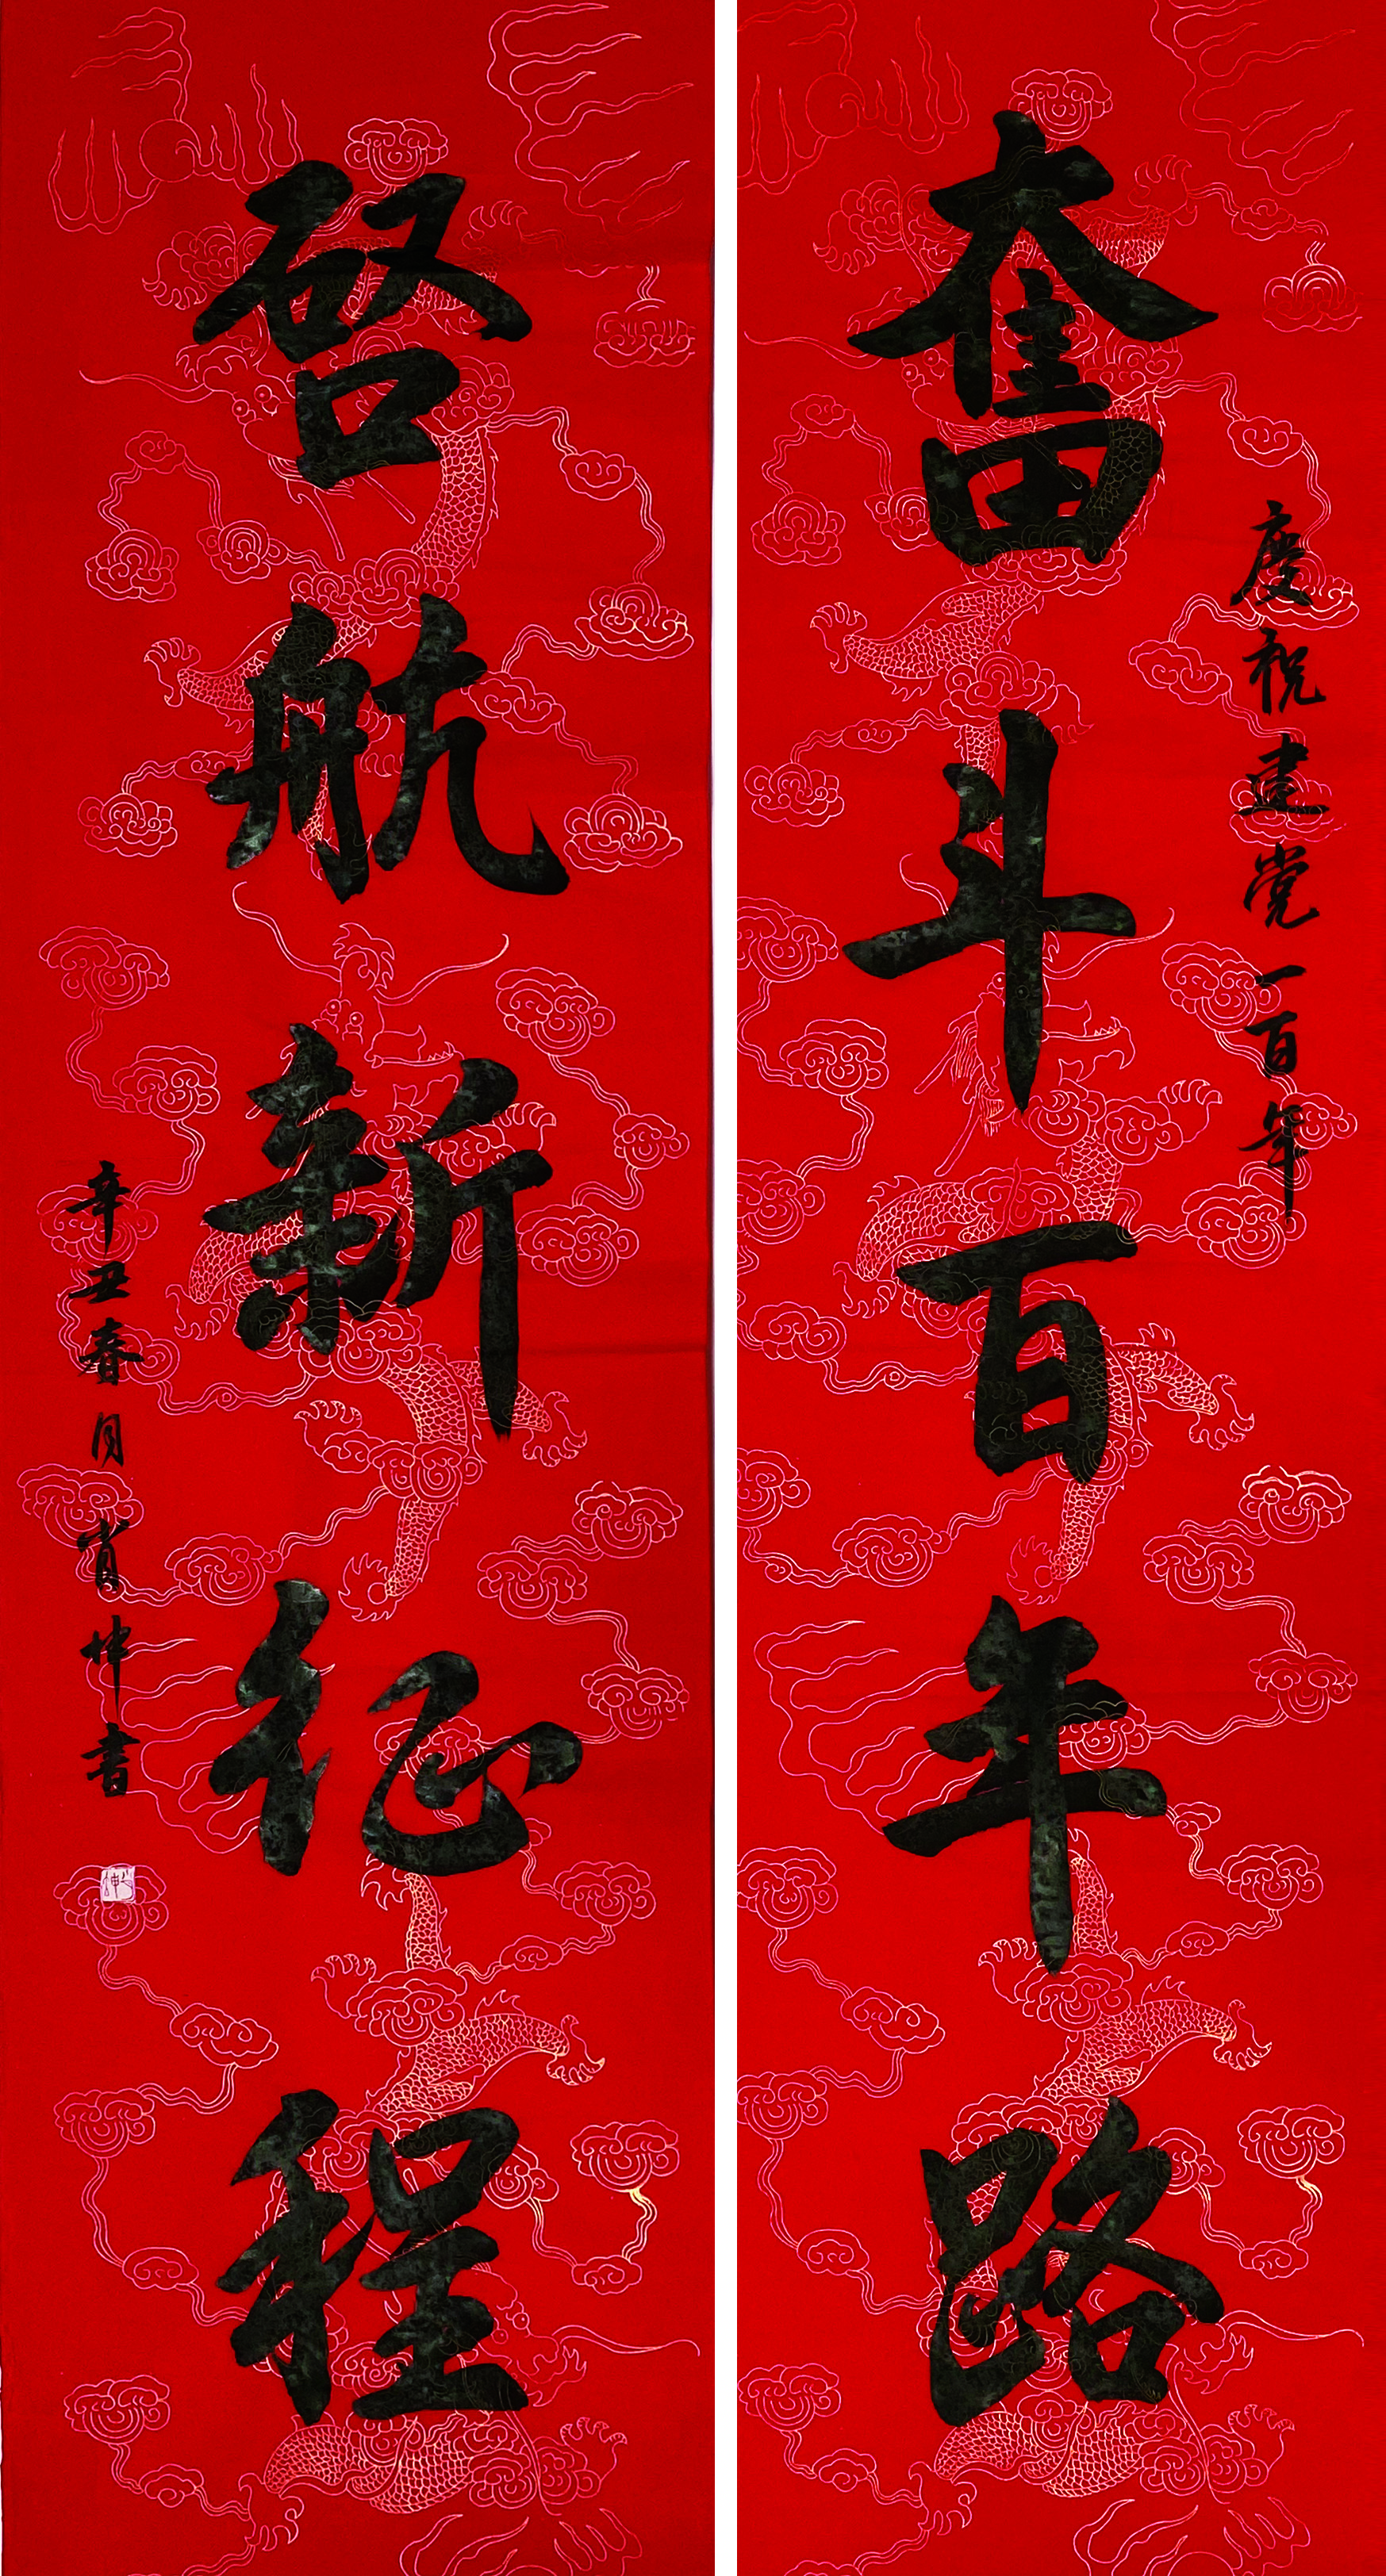 慶祝建党一百年
奮斗百年路
啓航新征程
辛丑春月肖坤書